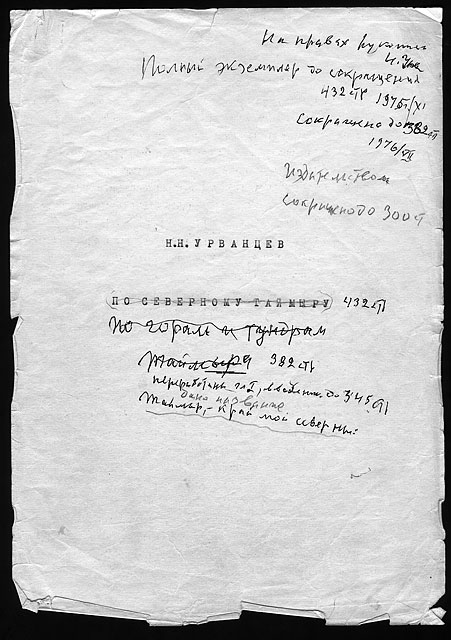 На правах рукописи
Н. Урв
Полный экземпляр до сокращения
432 ст 1976г/XI
Сокращено до 382 ст
1976/XII
Издательством
сокращено до 300 ст
Н.Н.УРВАНЦЕВ
ПО СЕВЕРНОМУ ТАЙМЫРУ 432 ст
По горам и тундрам
Таймыра 382 ст
переработаны гл I, до 345
дано название
Таймыр,- край мой северный